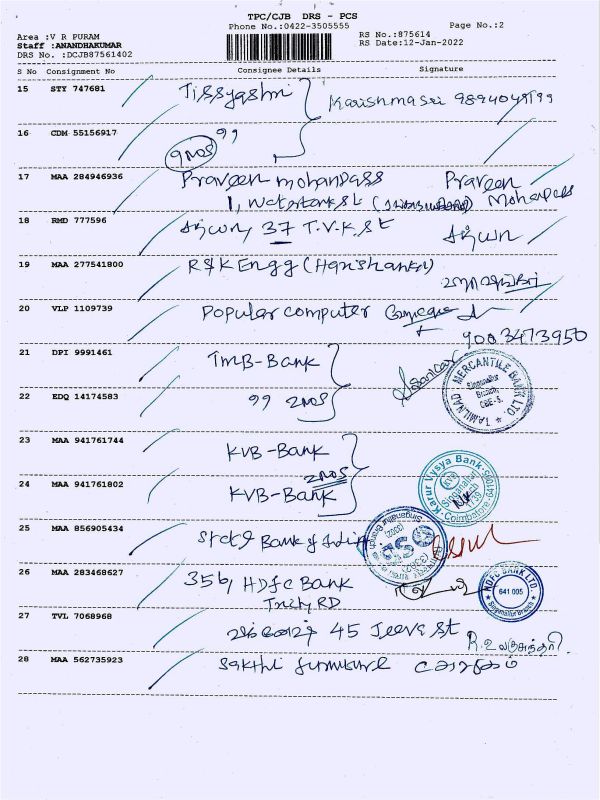 TPC/CJB DRS - PCS
Phone No.:0422-3505555
Page No.:2
Area :V R PURAM
Staff :ANANDHAKUMAR
DRS No. :DCJB87561402
RS No.:875614
RS Date:12-Jan-2022
S No Consignment No Consignee Details Signature
15 STY 747681
16 CDM 55156917
17 MAA 284946936 Praveen mohandass Praveen
1, Watertank St Mohandass
18 RMD 777596 37 T.V.K. St
19 MAA 277541800 R&K Engg
20 VLP 1109739 Popular computer
9003473950
21 DPI 9991461 TMB-Bank
TAMILNAD MERCANTILE BANK LTD.
Singanallur Branch, CBE-5.
22 EDQ 14174583 99 2NOS
23 MAA 941761744 KVB-Bank
2NOS
24 MAA 941761802 KVB-Bank
Karur Vysya Bank
Singanallur Branch
Coimbatore-641005
25 MAA 856905434 State Bank of India
26 MAA 283468627 356, HDFC Bank
Trichy RD
HDFC BANK LTD.
641 005
Singanallur Branch
27 TVL 7068968 45 Jeeva St
28 MAA 562735923 Sakthi furniture